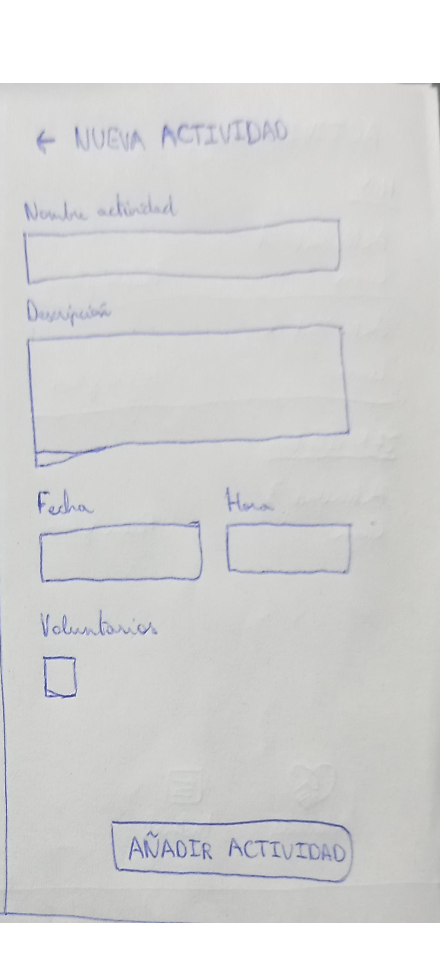 ← NUEVA ACTIVIDAD
Nombre actividad
Descripción
Fecha Hora
Voluntarios
AÑADIR ACTIVIDAD